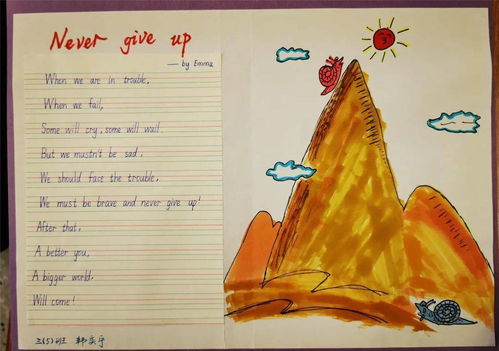 Never give up
— by Emma
When we are in trouble,
When we fail,
Some will cry, some will wail.
But we mustn't be sad,
We should face the trouble,
We must be brave and never give up!
After that,
A better you,
A bigger world,
Will come!
三(5)班 韩